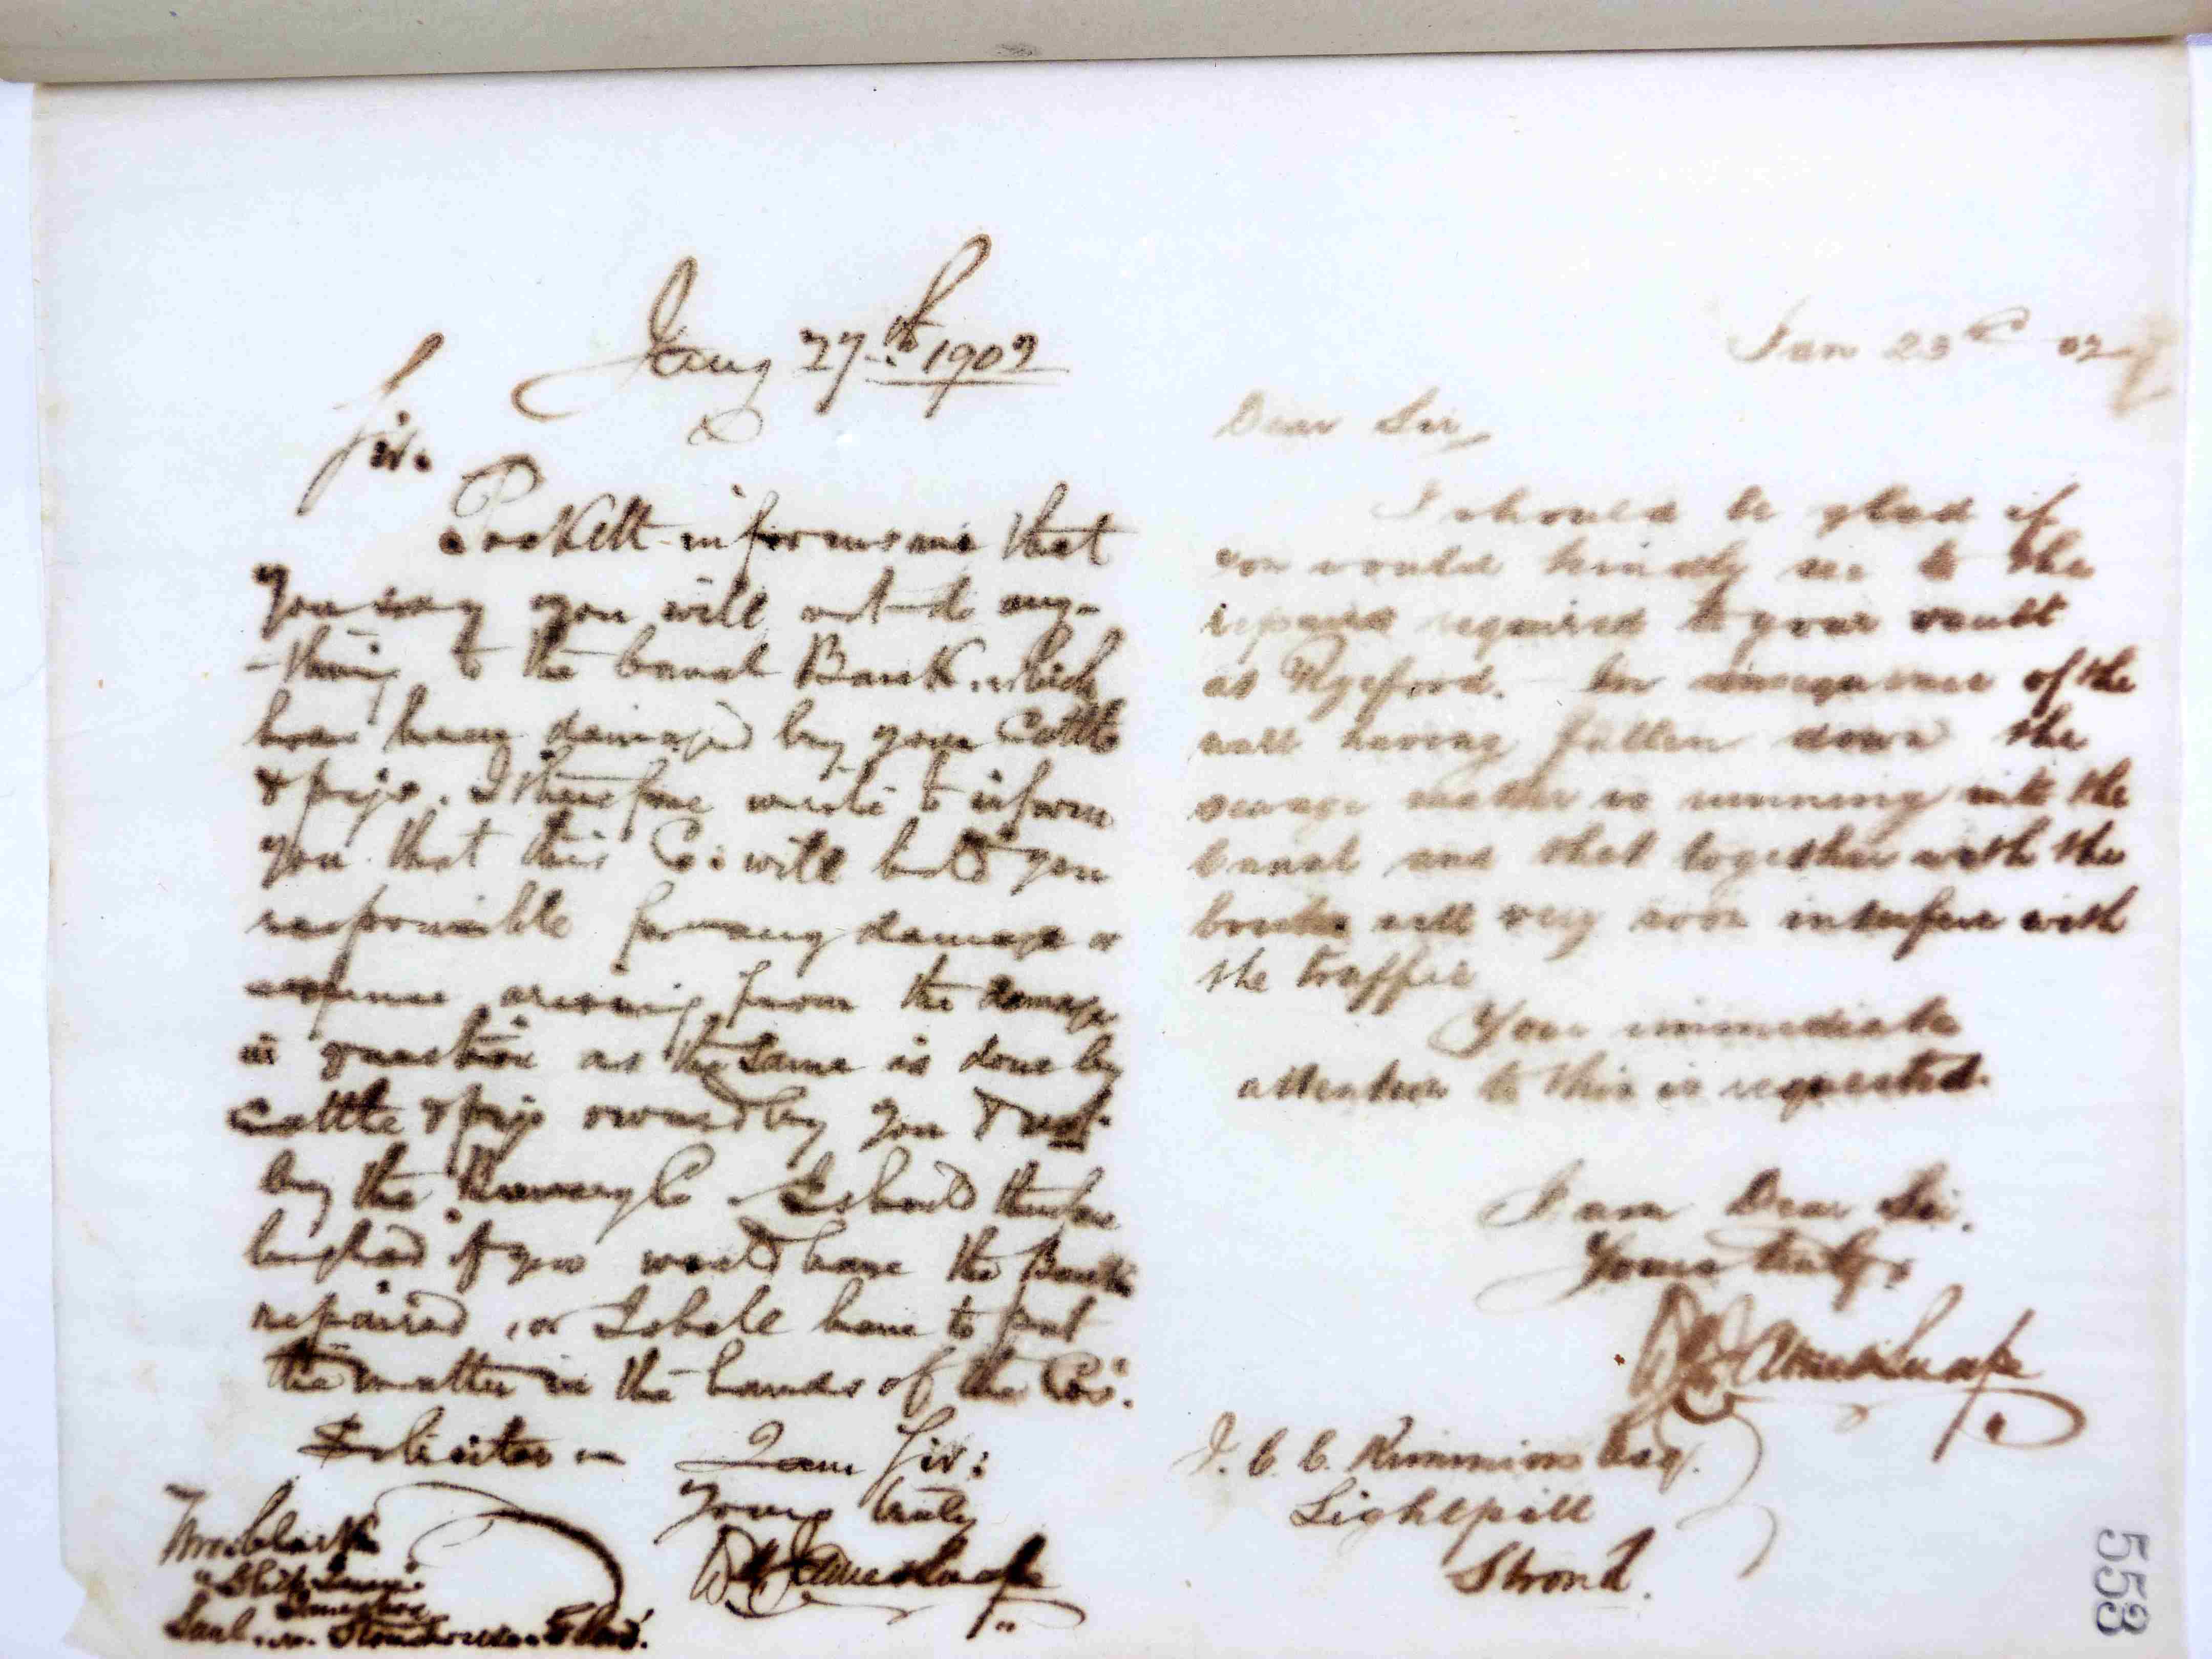 Jany 27th 1902
Sir.
Pockett informs me that
you say you will not do any-
-thing to the Canal Bank which
has been damaged by your Cattle
& pigs. I therefore write to inform
you that this Co: will hold you
responsible for any damage or
expense arising from the damage
in question as the same is done by
Cattle & pigs owned by you & not
by the Co I should therefore
be glad if you would have the Bank
repaired, or I shall have to put
the matter in the hands of the Cos'.
Solicitor — I am Sir:
Yours truly
Wm Clark
"Ship Inn"
Saul. nr. Stonehouse. Glos.
Jan 23rd 02
Dear Sir,
I should be glad if
you would kindly see to the
repairs required to your vault
at Ryeford. In consequence of the
wall having fallen down the
sewage matter is running into the
Canal and that together with the
bricks will very soon interfere with
the traffic
Your immediate
attention to this is requested.
I am Dear Sir.
Yours truly
J. C. C. Kimmins Esq.
Lightpill
Stroud.
553